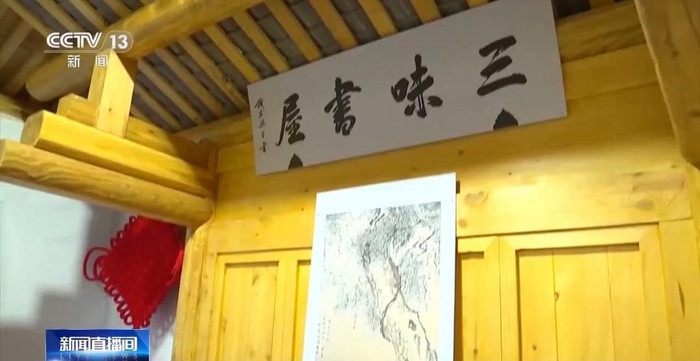 CCTV 13
新闻
三味書屋
新闻直播间